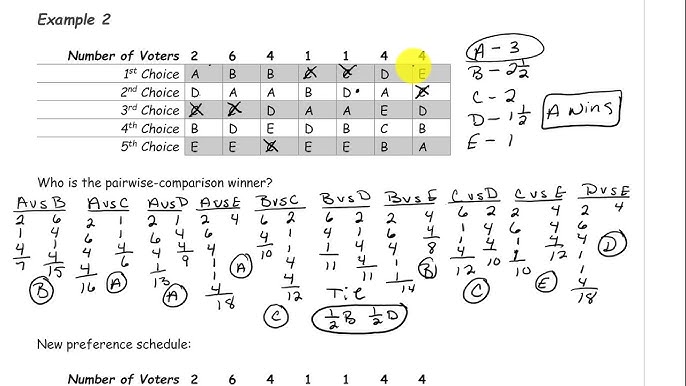 Example 2
Number of Voters 2 6 4 1 1 4 4
1st Choice A B B C C D E
2nd Choice D A A B D A C
3rd Choice C C D A A E D
4th Choice B D E D B C B
5th Choice E E C E E B A
A - 3
B - 2 1/2
C - 2
D - 1 1/2
E - 1
A wins
Who is the pairwise-comparison winner?
A vs B A vs C A vs D A vs E B vs C B vs D B vs E C vs D C vs E D vs E
2 6 2 1 2 1 2 4 6 2 6 2 2 4 6 2 2 4 2 4
1 4 6 1 6 4 6 4 1 4 1 6 4 1 4 6 4 6
4 1 4 4 4 4 4 1 1 1 4 4 8 4 4 1 4 4 D
7 4 4 6 1 9 1 A 10 4 11 4 1 B 12 10 1 12 1
15 16 13 4 4 11 14 10 1
B A A 18 12 Tie C E 4
C 1/2 B 1/2 D 18
New preference schedule:
Number of Voters 2 6 4 1 1 4 4